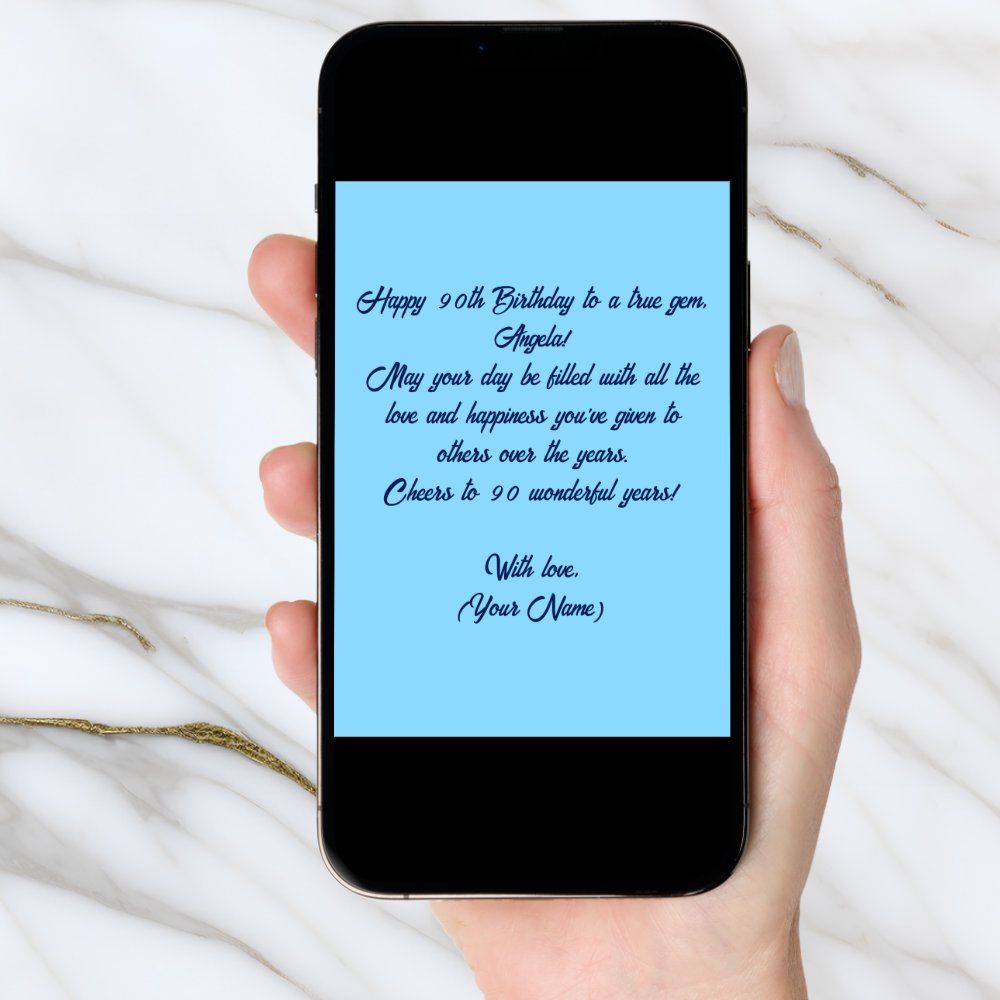 Happy 90th Birthday to a true gem,
Angela!
May your day be filled with all the
love and happiness you've given to
others over the years.
Cheers to 90 wonderful years!
With love,
(Your Name)